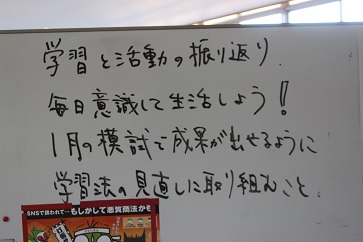 学習と活動の振り返り.
毎日意識して生活しよう!
1月の模試で成果が出せるように
学習法の見直しに取り組むこと.
SNSで誘われて…もしかして悪質商法かも